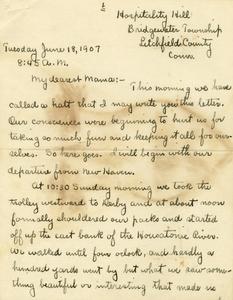 1
Hospitality Hill
Bridgewater Township
Litchfield County
Conn.
Tuesday June 18, 1907
8:45 A.M.
My dearest Mama:-
This morning we have
called a halt that I may write you this letter.
Our consciences were beginning to hurt us for
taking so much fun and keeping it all for our-
selves. So here goes. I will begin with our
departure from New Haven.
At 10:30 Sunday morning we took the
trolley westward to Derby and at about noon
formally shouldered our packs and started
off up the east bank of the Housatonic River.
We walked until four o'clock, and hardly a
hundred yards went by but what we saw some-
thing beautiful or interesting that made us